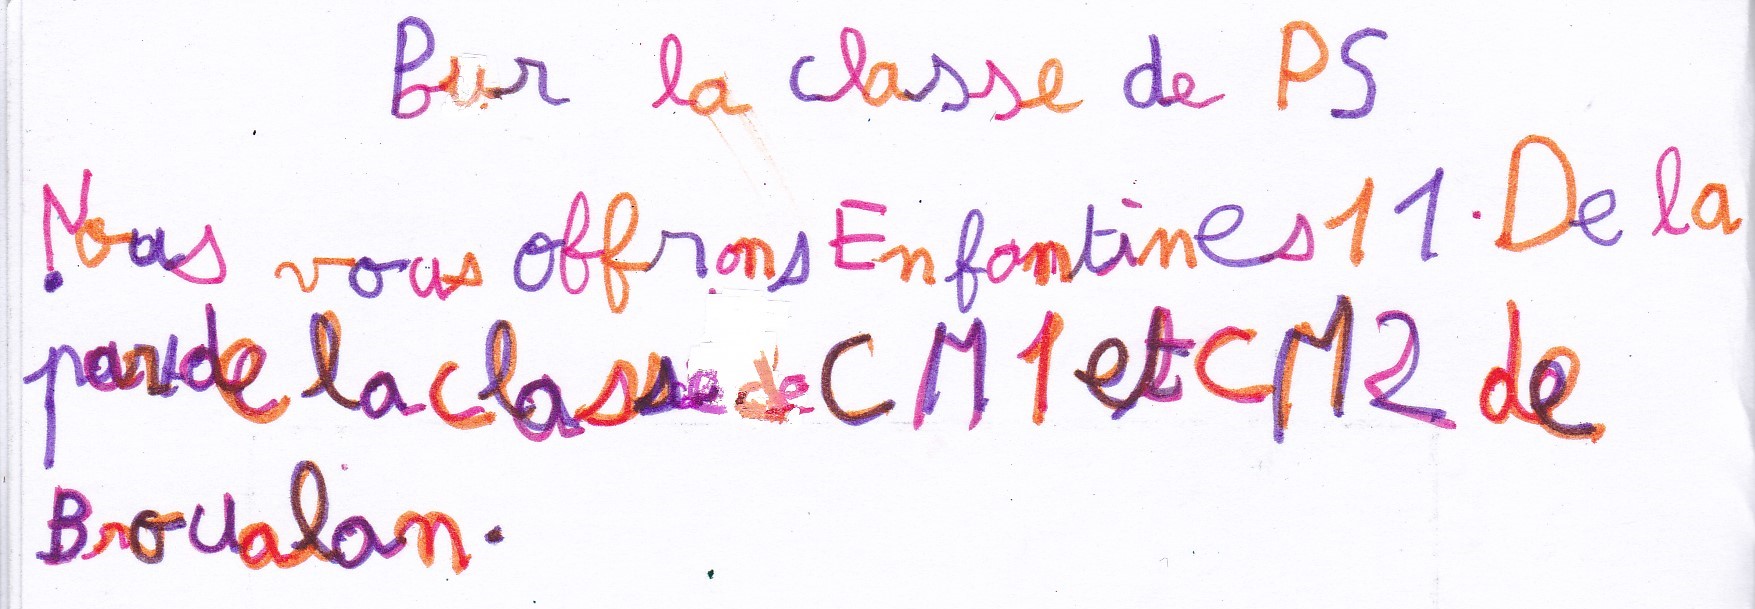 Pour la classe de PS
Nous vous offrons Enfantines 11. De la
par de la classe de CM1 et CM2 de
Broualan.